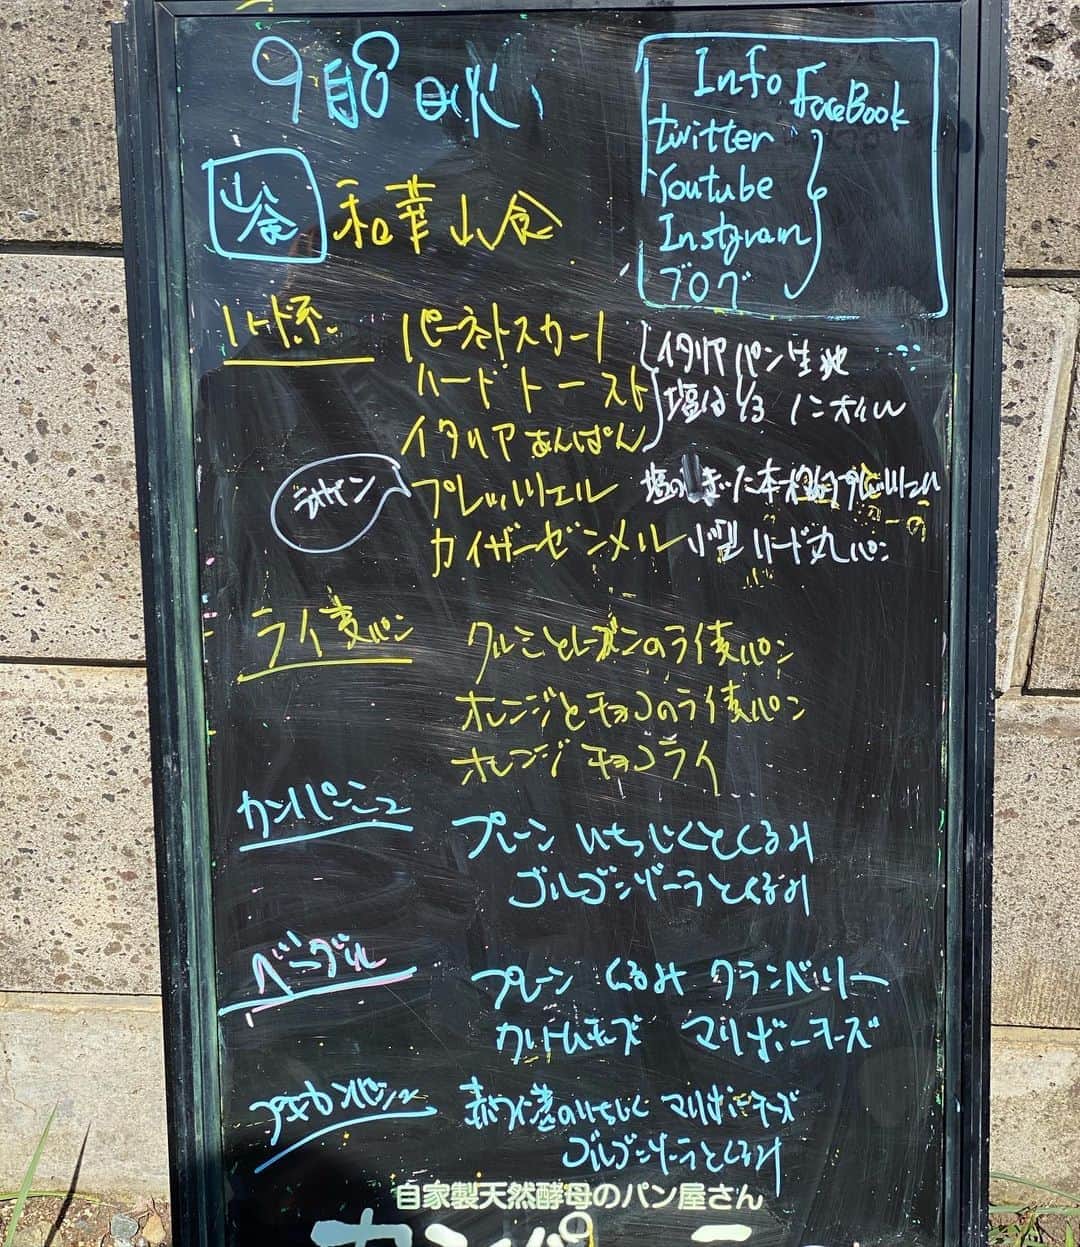 9月8日(火)
Info FaceBook
twitter
Youtube
Instgram
ブログ
山食 和華山食
ハード系 パーネトスカーノ イタリアパン生地
ハードトースト 塩は1/3
イタリアあんぱん
プレッツェル 塩の
カイザーゼンメル 小型ハード丸パン
ライ麦パン クルミとレーズンのライ麦パン
オレンジとチョコのライ麦パン
オレンジチョコライ
カンパーニュ プレーン いちじくとくるみ
ゴルゴンゾーラとくるみ
ベーグル プレーン くるみ クランベリー
クリームチーズ マリボーチーズ
プチカンパーニュ 赤ワイン漬のいちじく マリボーチーズ
ゴルゴンゾーラとくるみ
自家製天然酵母のパン屋さん